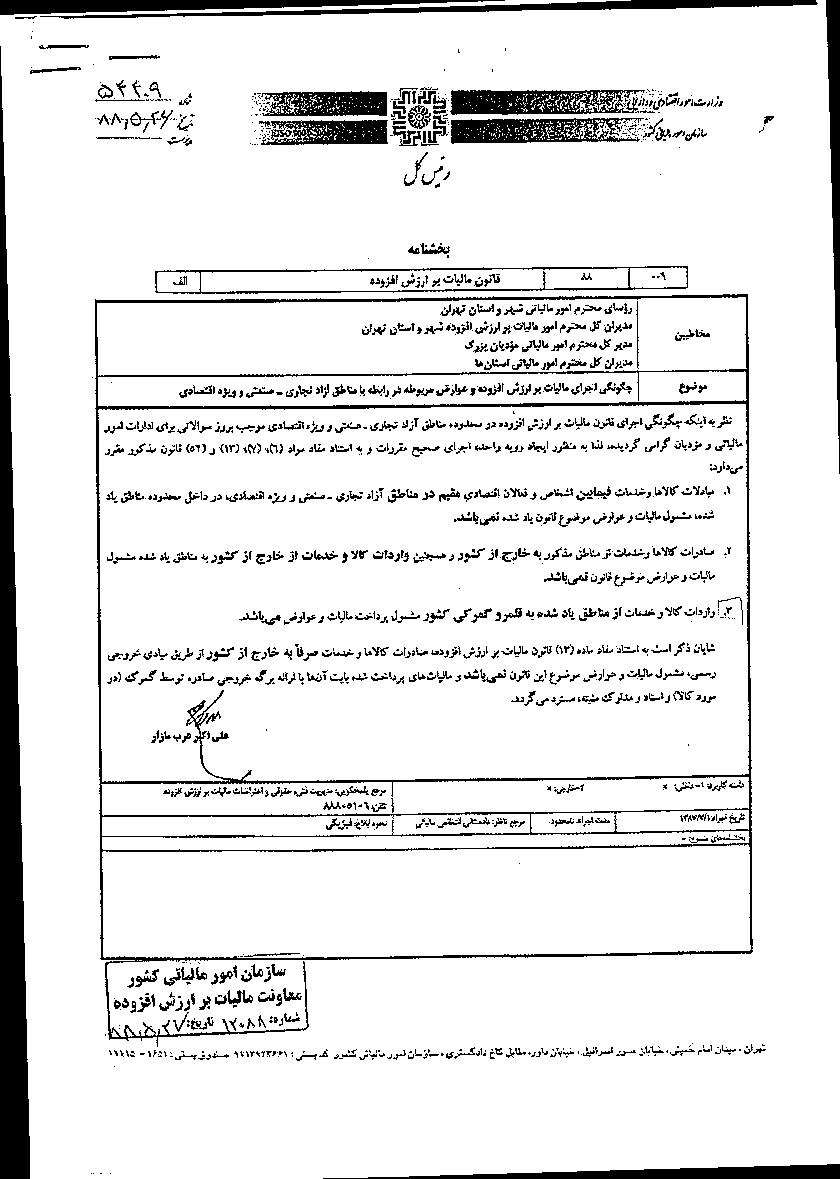 وزارت امور اقتصادی و دارایی
سازمان امور مالیاتی کشور
شماره ۵۴۴۰۹
تاریخ ۸۸,۵,۲۶
پیوست
رئیس کل
بخشنامه
۰۰۶ ۸۸ قانون مالیات بر ارزش افزوده الف
مخاطبین
رؤسای محترم امور مالیاتی شهر و استان تهران
مدیران کل محترم امور مالیات بر ارزش افزوده شهر و استان تهران
مدیر کل محترم امور مالیاتی مؤدیان بزرگ
مدیران کل محترم امور مالیاتی استان‌ها
موضوع چگونگی اجرای مالیات بر ارزش افزوده و عوارض مربوطه در رابطه با مناطق آزاد تجاری - صنعتی و ویژه اقتصادی
نظر به اینکه چگونگی اجرای قانون مالیات بر ارزش افزوده در محدوده مناطق آزاد تجاری - صنعتی و ویژه اقتصادی موجب بروز سوالاتی برای ادارات امور
مالیاتی و مؤدیان گرامی گردیده، لذا به منظور ایجاد رویه واحد، اجرای صحیح مقررات و به استناد مفاد مواد (۶)، (۷)، (۱۳) و (۵۲) قانون مذکور مقرر
می‌دارد:
۱. مبادلات کالاها و خدمات فیمابین اشخاص و فعالان اقتصادی مقیم در مناطق آزاد تجاری - صنعتی و ویژه اقتصادی، در داخل محدوده مناطق یاد
شده، مشمول مالیات و عوارض موضوع قانون یاد شده نمی‌باشد.
۲. صادرات کالاها و خدمات از مناطق مذکور به خارج از کشور و همچنین واردات کالا و خدمات از خارج از کشور به مناطق یاد شده مشمول
مالیات و عوارض موضوع قانون نمی‌باشد.
۳. واردات کالا و خدمات از مناطق یاد شده به قلمرو گمرکی کشور مشمول پرداخت مالیات و عوارض می‌باشد.
شایان ذکر است به استناد مفاد ماده (۱۳) قانون مالیات بر ارزش افزوده، صادرات کالاها و خدمات صرفاً به خارج از کشور از طریق مبادی خروجی
رسمی، مشمول مالیات و عوارض موضوع این قانون نمی‌باشد و مالیات‌های پرداخت شده بابت آن‌ها با ارائه برگه خروجی صادره توسط گمرک (در
مورد کالا) و اسناد و مدارک مثبته، مسترد می‌گردد.
علی اکبر عرب مازار
دامنه کاربرد: ۱- داخلی: × ۲- خارجی: ×
مرجع پاسخگویی: مدیریت فنی، حقوقی و اعتراضات مالیات بر ارزش افزوده
تلفن: ۸۸۸۰۵۱۰۶
تاریخ اجرا: ۱۳۸۷/۷/۱ مدت اجرا: نامحدود مرجع ناظر: دادستانی انتظامی مالیاتی نحوه ابلاغ: فیزیکی
بخشنامه‌های منسوخ: -
سازمان امور مالیاتی کشور
معاونت مالیات بر ارزش افزوده
شماره: ۱۲۰۸۸ تاریخ: ۸۸,۵,۲۷
تهران، میدان امام خمینی، خیابان صور اسرافیل، خیابان داور، مقابل کاخ دادگستری، سازمان امور مالیاتی کشور کد پستی: صندوق پستی: ۱۶۵۱ -